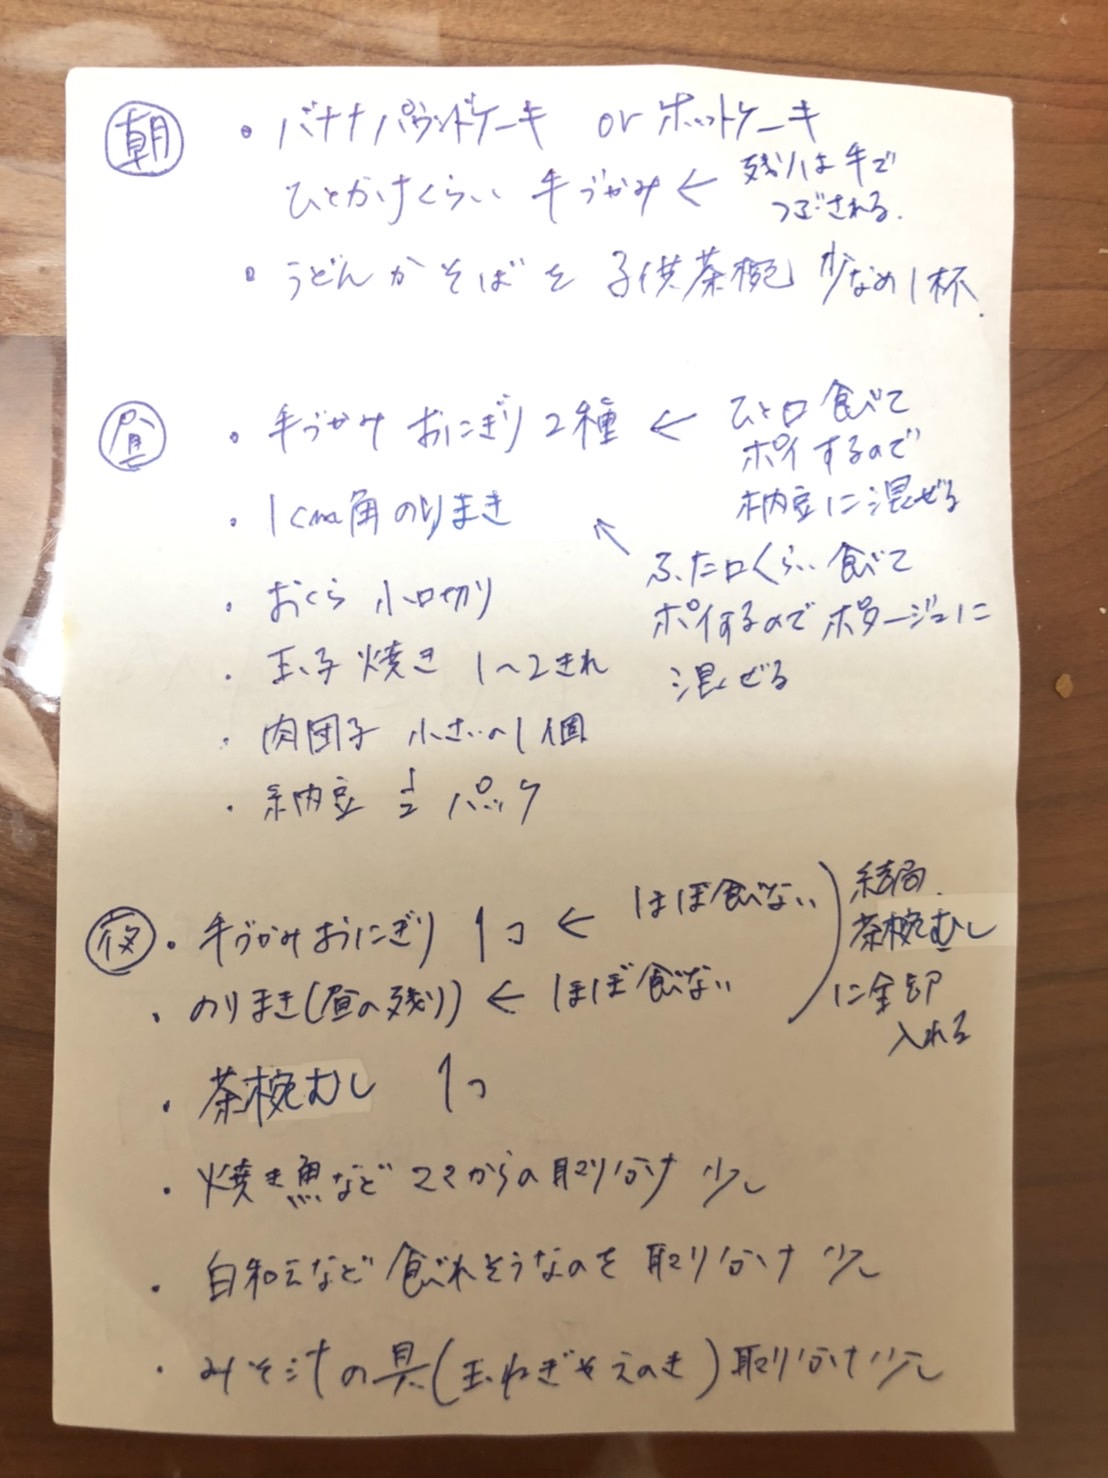 朝
・バナナパウンドケーキ or ホットケーキ
ひとかけくらい 手づかみ ← 残りは手で
つぶされる.
・うどんかそばを 子供茶椀 少なめ1杯.
昼
・手づかみ おにぎり 2種 ← ひと口 食べて
ポイするので
納豆に混ぜる
・1cm角のりまき
↖ ふた口くらい 食べて
ポイするので ポタージュに
混ぜる
・おくら 小口切り
・玉子焼き 1〜2きれ
・肉団子 小さいの1個
・納豆 1/2 パック
夜
・手づかみおにぎり 1コ ← ほぼ食べない
・のりまき(昼の残り) ← ほぼ食べない
結局.
茶椀むし
に全部
入れる
・茶椀むし 1コ
・焼き魚など ママからの取り分け 少し
・白和えなど 食べれそうなのを 取り分け 少し
・みそ汁の具(玉ねぎやえのき)取り分け少し